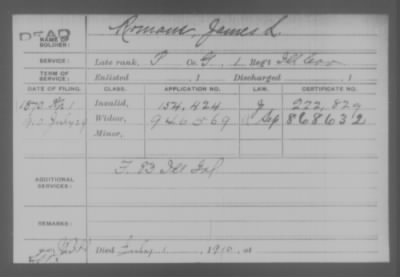 DEAD
NAME OF SOLDIER: Romans, James L.
SERVICE: Late rank, P Co. G, 1 Reg't Ill Cav
TERM OF SERVICE: Enlisted 1 Discharged 1
DATE OF FILING. CLASS. APPLICATION NO. LAW. CERTIFICATE NO.
1870 1 Invalid, 154,424 222,829
July 29 Widow, 946569 Sep 868632
Minor,
ADDITIONAL SERVICES: F. 83 Ill Inf
REMARKS:
Died July 1, 1910, at